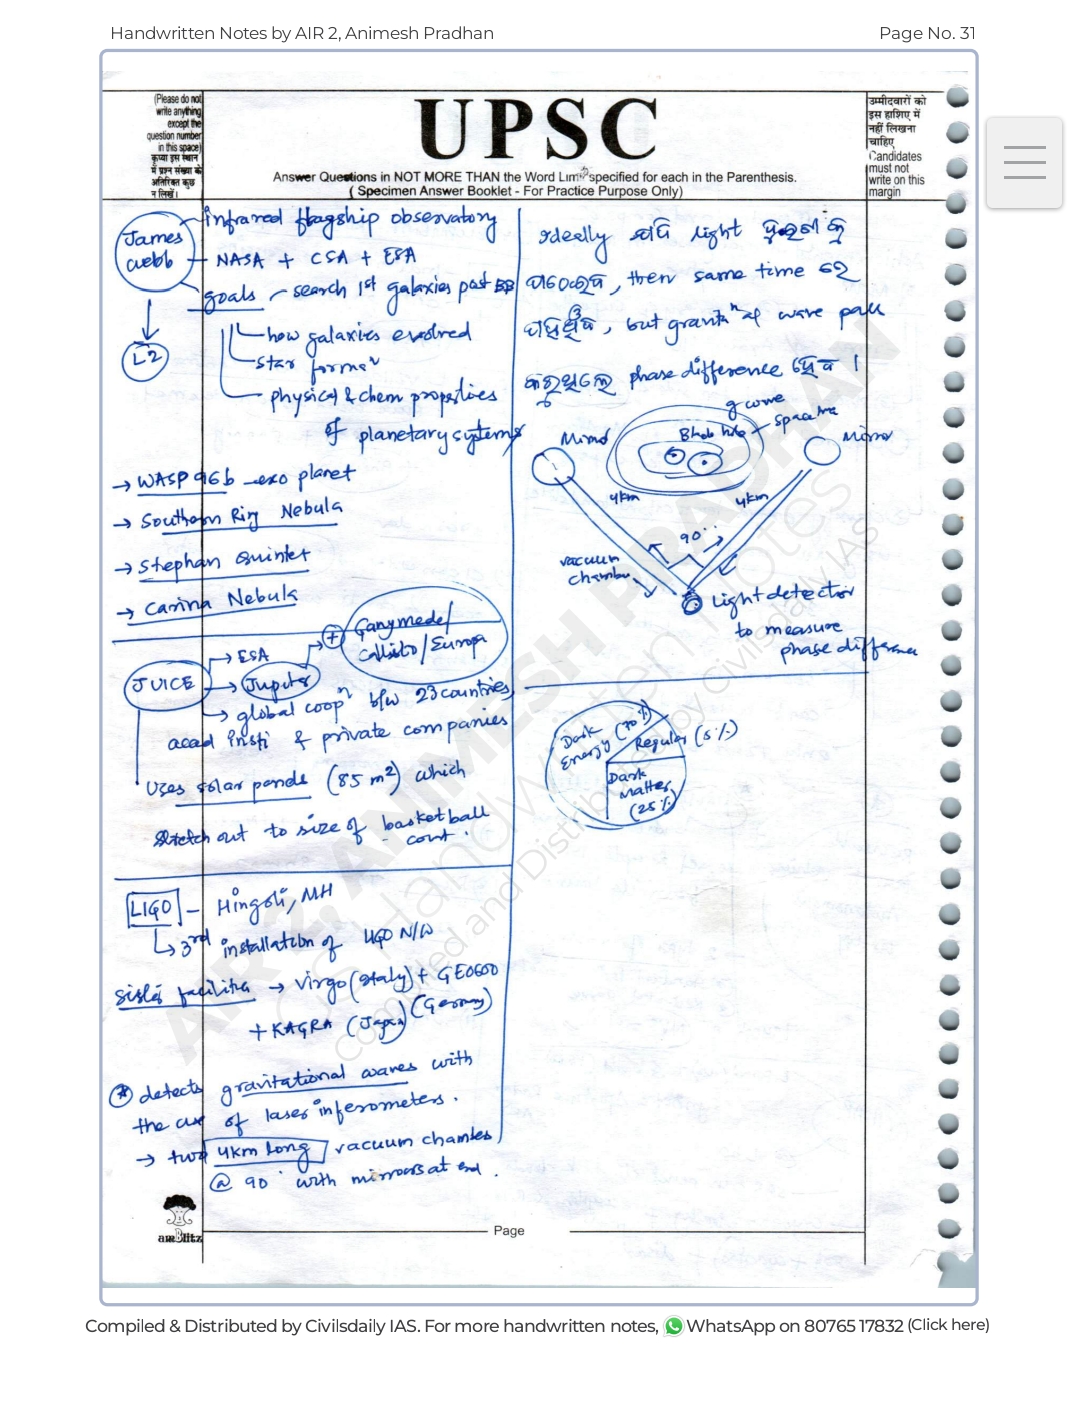 Handwritten Notes by AIR 2, Animesh Pradhan
Page No. 31
(Please do not
write anything
except the
question number
in this space)
कृपया इस स्थान
में प्रश्न संख्या के
अतिरिक्त कुछ
न लिखें।
UPSC
Answer Questions in NOT MORE THAN the Word Limit specified for each in the Parenthesis.
( Specimen Answer Booklet - For Practice Purpose Only)
उम्मीदवारों को
इस हाशिए में
नहीं लिखना
चाहिए
Candidates
must not
write on this
margin
James
Webb
infrared flagship observatory
NASA + CSA + ESA
goals - search 1st galaxies post BB
L2
how galaxies evolved
star formaⁿ
physical & chem properties
of planetary systems
→ WASP 96b - exo planet
→ Southern Ring Nebula
→ Stephan Quintet
→ Carina Nebula
JUICE
→ ESA
→ Jupiter
+ Ganymede/
Callisto/Europa
→ global coopⁿ b/w 23 countries,
acad insti & private companies
Uses solar panels (85 m²) which
stretch out to size of basketball
court.
LIGO - Hingoli, MH
↳ 3rd installation of LIGO N/W
sister facilities → Virgo (Italy) + GEO600
(Germany)
+ KAGRA (Japan)
* detects gravitational waves with
the use of laser inferometers.
→ two 4km long vacuum chambers
@ 90° with mirrors at end.
Ideally ଯଦି light
, then same time ରେ
, but gravitⁿal wave pass
phase difference ହେବ ।
g wave
Black hole - space
Mirror
Mirror
4km
4km
90°
vacuum
chamber
Light detector
to measure
phase difference
Dark
Energy (70%)
Regular (5%)
Dark
Matter
(25%)
AIR 2, ANIMESH PRADHAN
GS Handwritten Notes
Compiled and Distributed by Civilsdaily IAS
Page
Compiled & Distributed by Civilsdaily IAS. For more handwritten notes, WhatsApp on 80765 17832 (Click here)